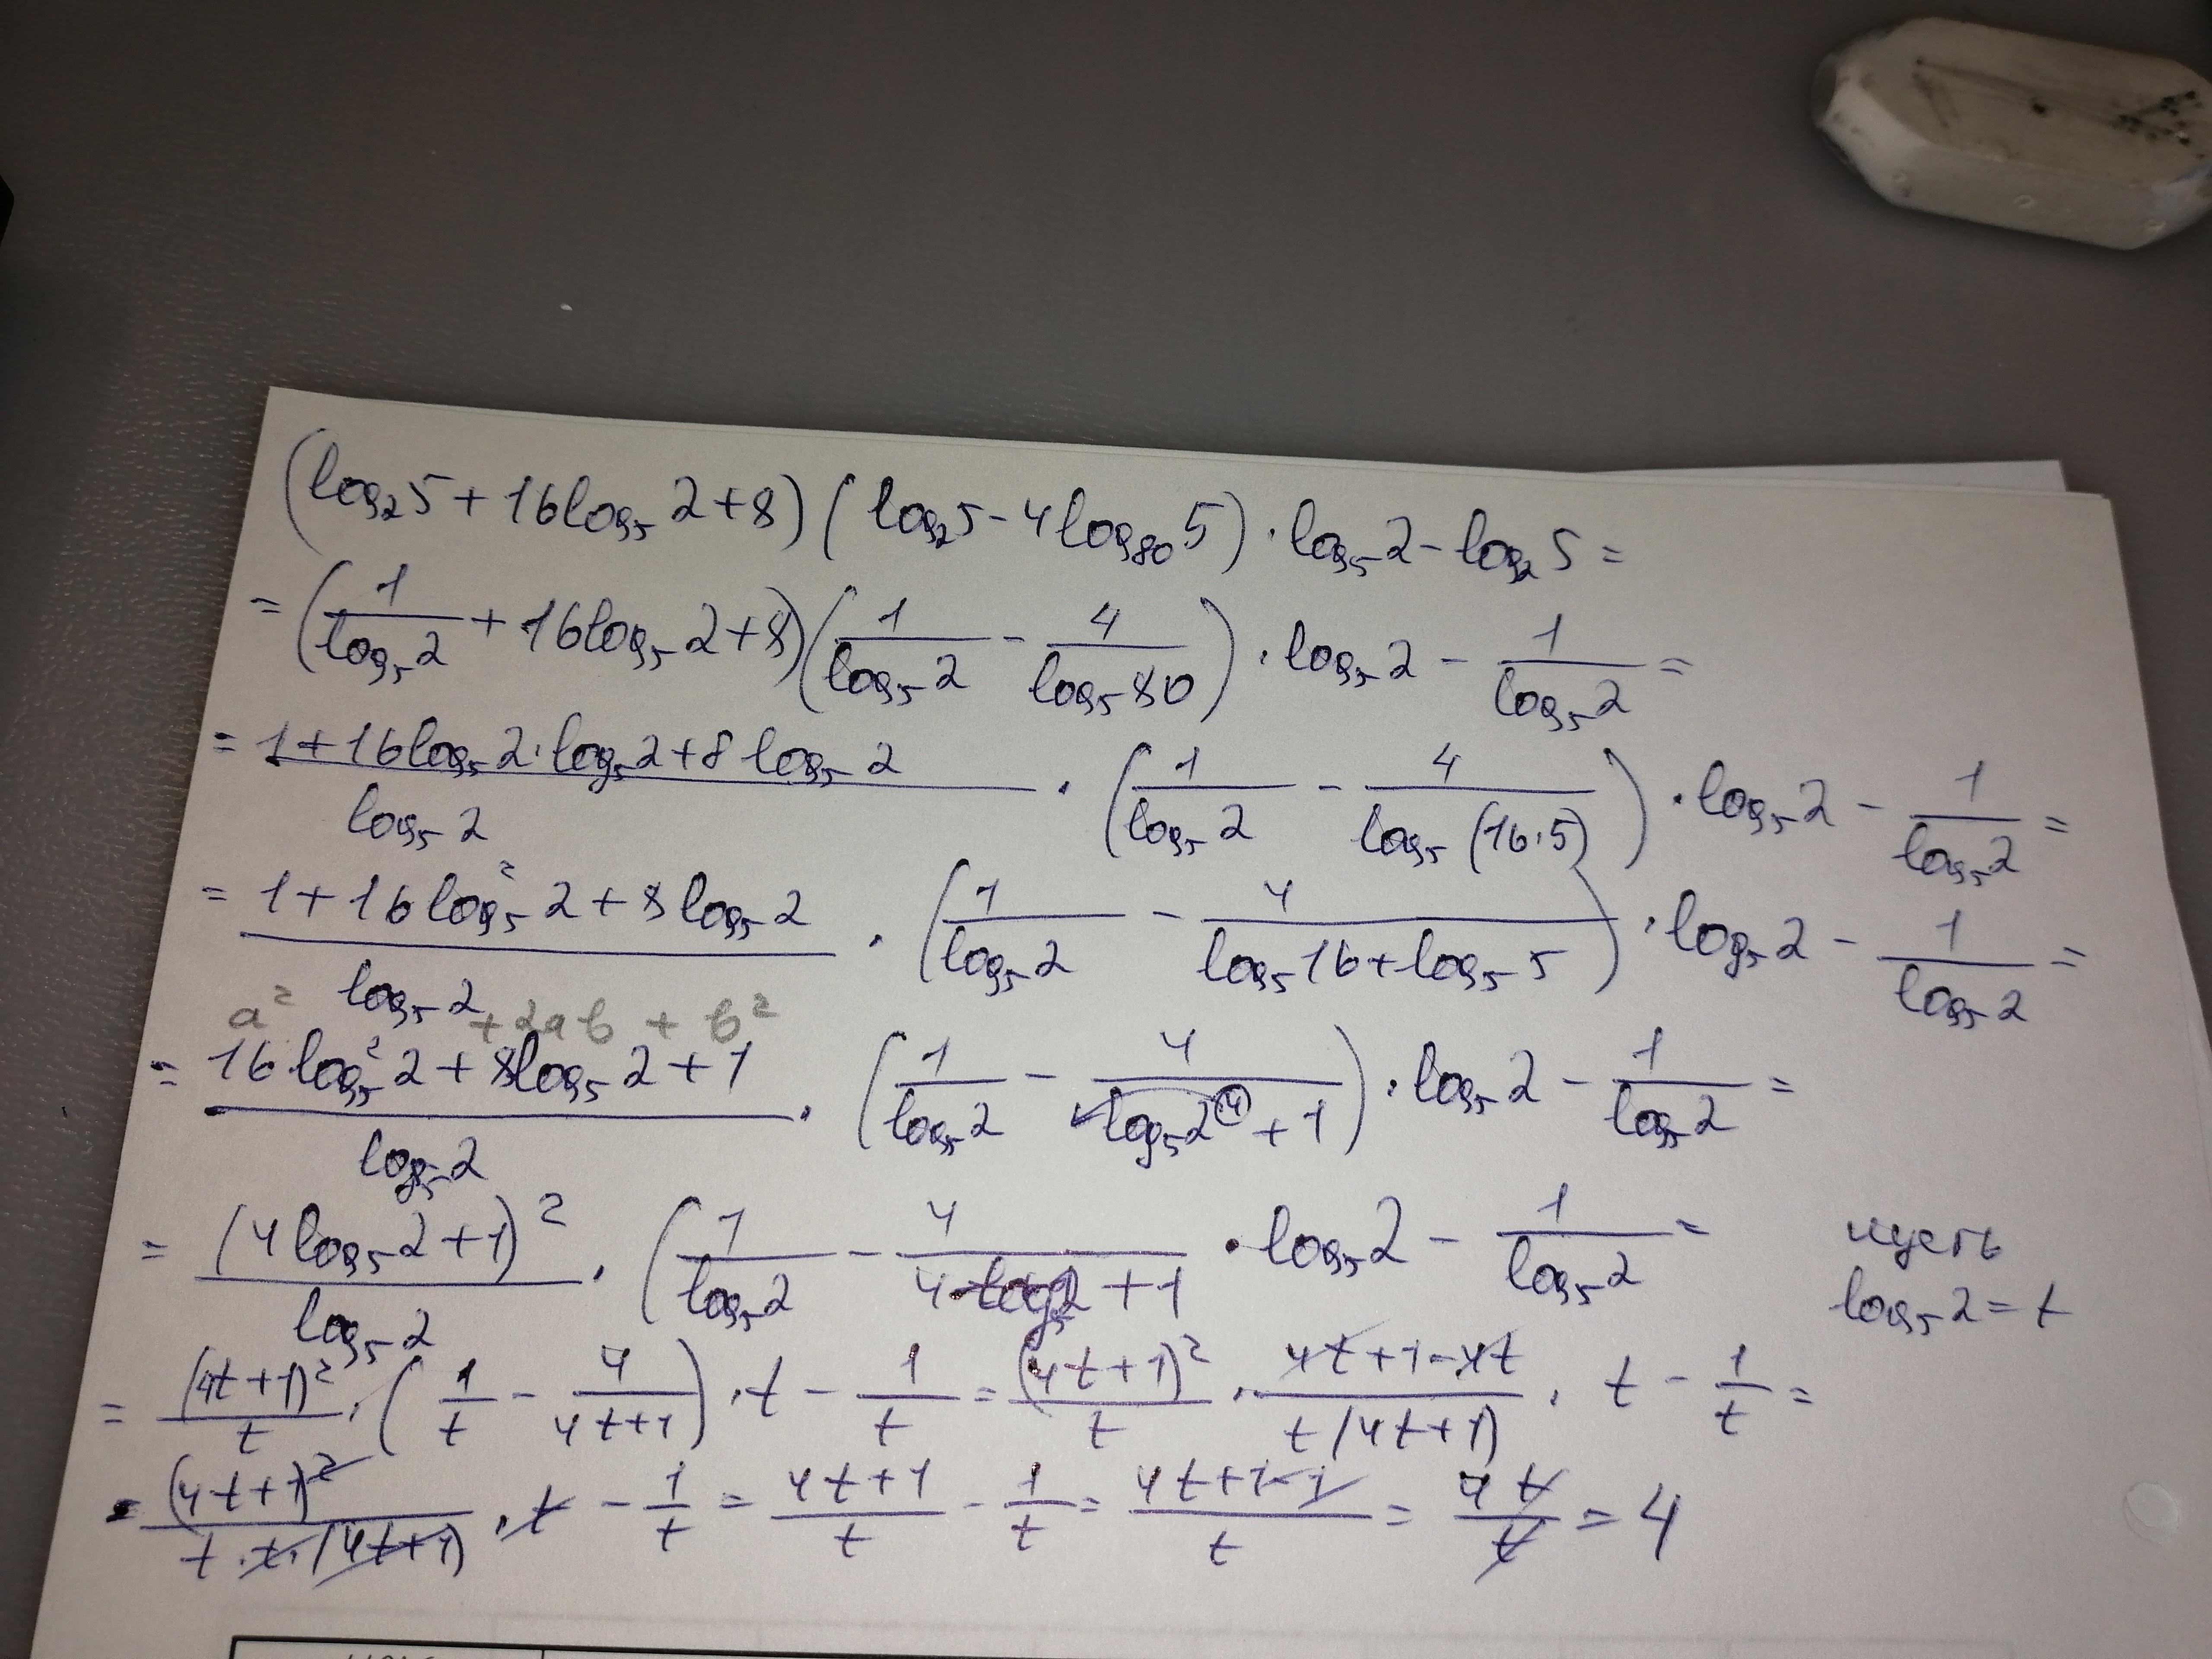 (log₂5+16log₅2+8)(log₂5-4log₈₀5)·log₅2-log₂5=
=(1/log₅2+16log₅2+8)(1/log₅2-4/log₅80)·log₅2-1/log₅2=
=(1+16log₅2·log₅2+8log₅2)/log₅2·(1/log₅2-4/log₅(16·5))·log₅2-1/log₅2=
=(1+16log₅²2+8log₅2)/log₅2·(1/log₅2-4/(log₅16+log₅5))·log₅2-1/log₅2=
a²+2ab+b²
=(16log₅²2+8log₅2+1)/log₅2·(1/log₅2-4/(log₅2⁴+1))·log₅2-1/log₅2=
=(4log₅2+1)²/log₅2·(1/log₅2-4/(4·log₅2+1)·log₅2-1/log₅2=
пусть
log₅2=t
=(4t+1)²/t·(1/t-4/(4t+1))·t-1/t=(4t+1)²/t·(4t+1-4t)/(t(4t+1))·t-1/t=
=(4t+1)²/(t·t·(4t+1))·t-1/t=(4t+1)/t-1/t=(4t+1-1)/t=4t/t=4